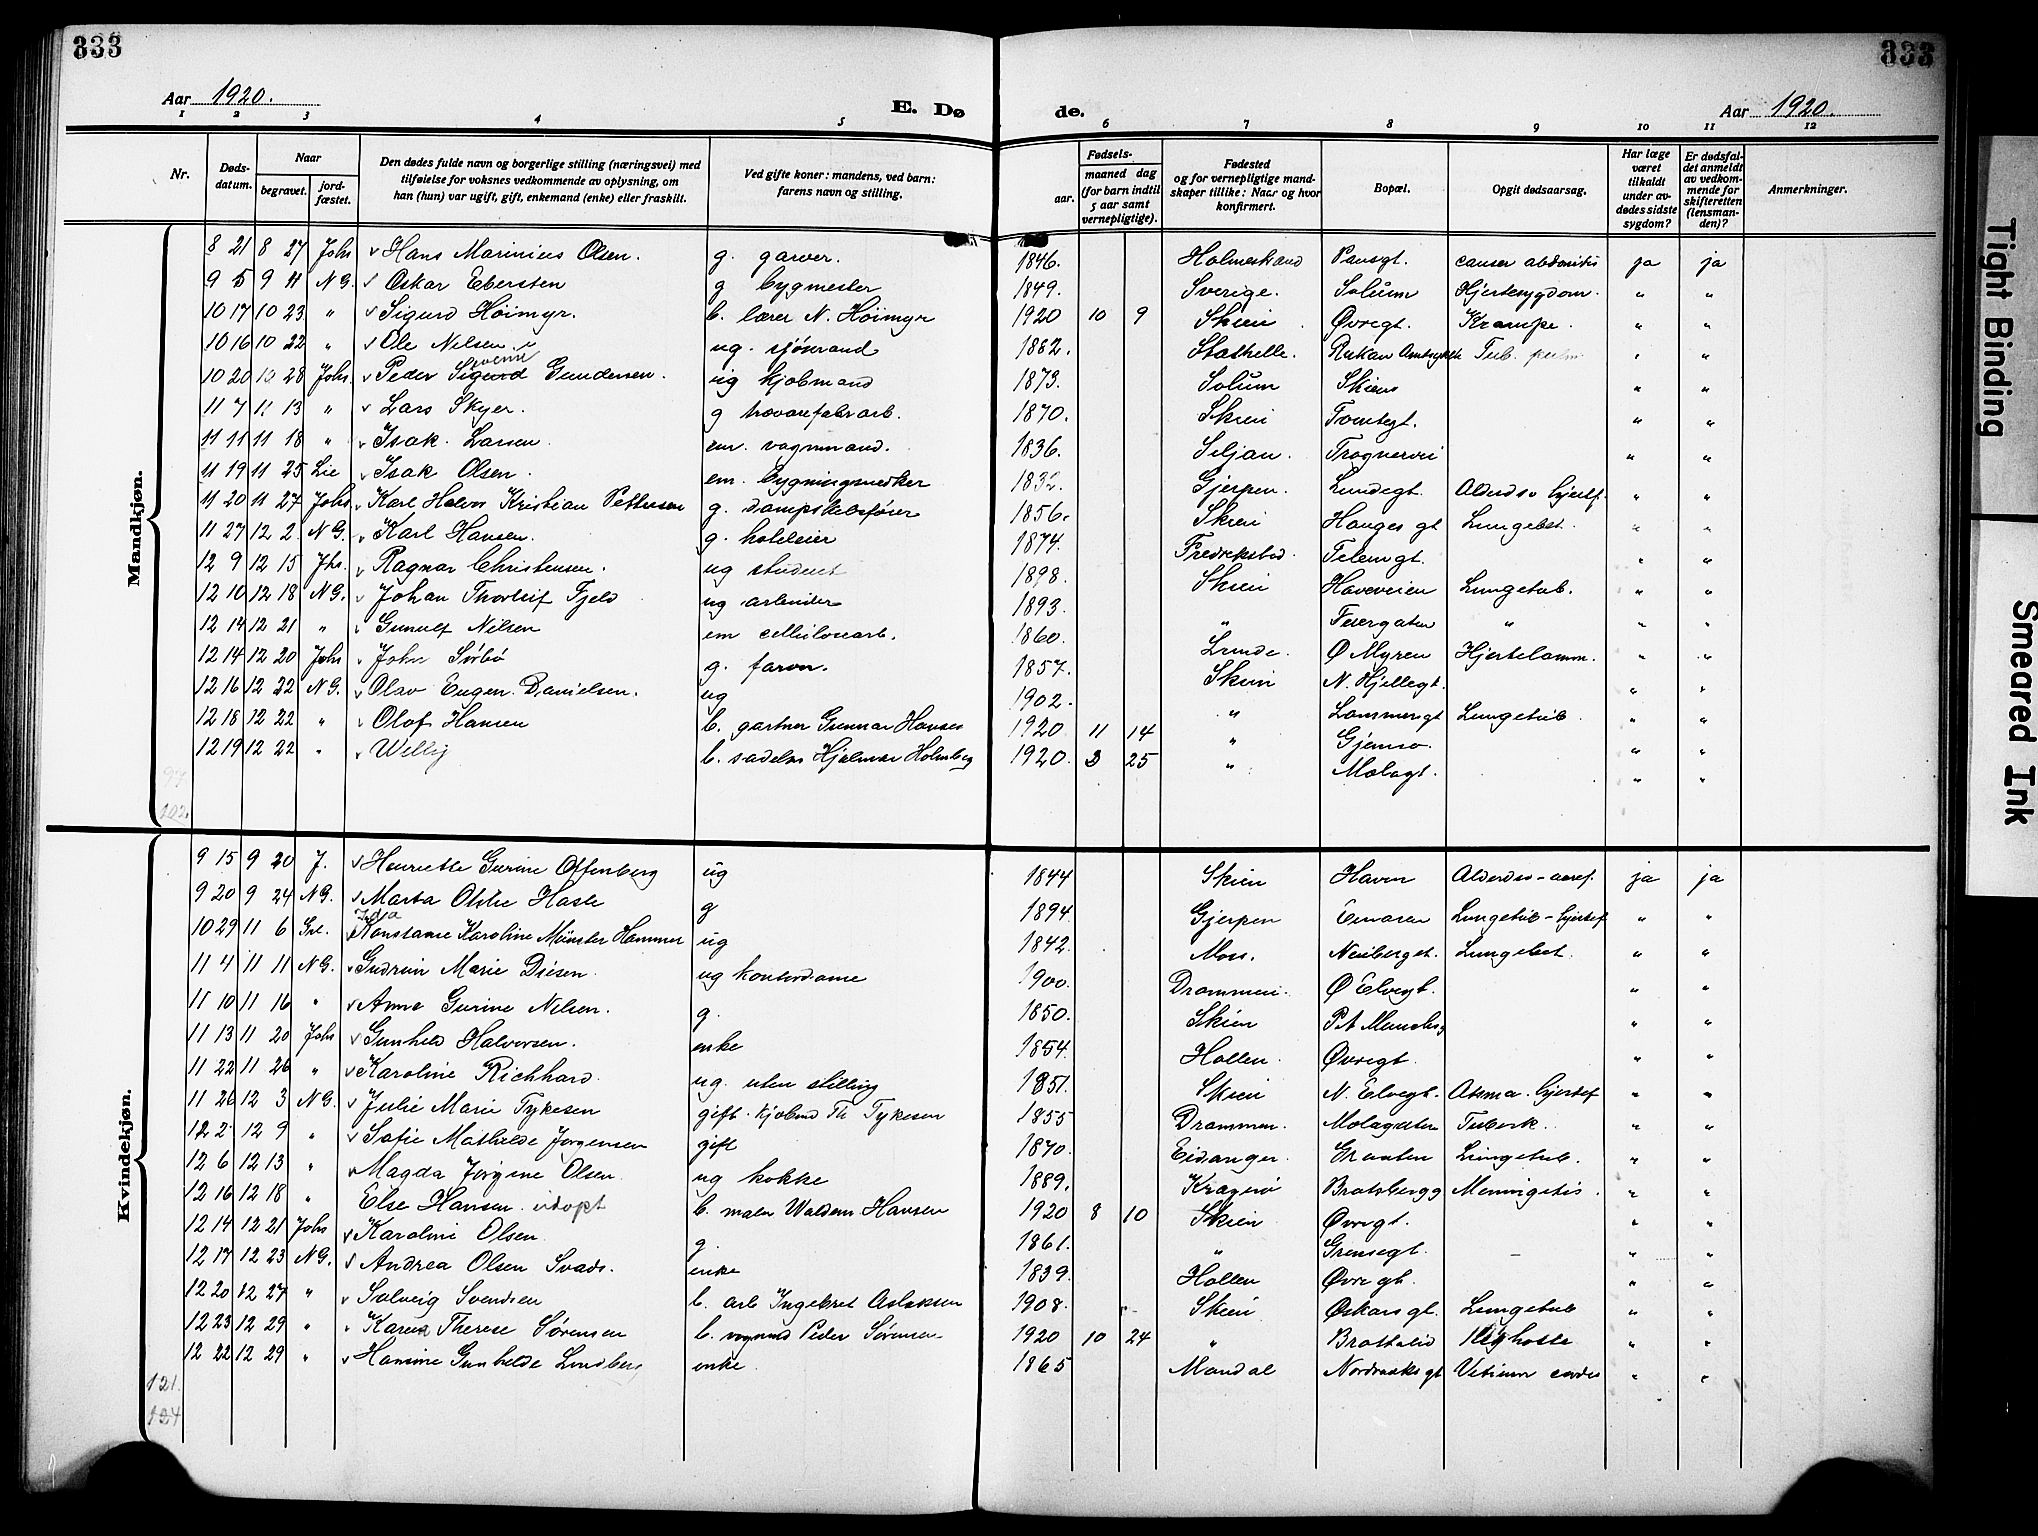 333
333
Aar 1920.
E. Dø
de.
Aar 1920.
1 2 3 4 5 6 7 8 9 10 11 12
Nr.
Døds-datum.
Naar
begravet.
jord-fæstet.
Den dødes fulde navn og borgerlige stilling (næringsvei) med tilføielse for voksnes vedkommende av oplysning, om han (hun) var ugift, gift, enkemand (enke) eller fraskilt.
Ved gifte koner: mandens, ved barn: farens navn og stilling.
Fødsels-
aar.
maaned dag
(for barn indtil 5 aar samt vernepligtige).
Fødested og for vernepligtige mandskaper tillike: Naar og hvor konfirmert.
Bopæl.
Opgit dødsaarsag.
Har læge været tilkaldt under avdødes sidste sygdom?
Er dødsfaldet anmeldt av vedkommende for skifteretten (lensmanden)?
Anmerkninger.
Mandkjøn.
8 21 8 27 Johs Hans Marinius Olsen. g. garver. 1846. Holmestrand cancer abdominis ja ja
9 5 9 11 N G. Oskar Ebersten g bygmester 1849. Sverige. Solum Hjertesygdom. " "
10 17 10 23 " Sigurd Høimyr. b. lærer N. Høimyr 1920 10 9 Skien Øvregt. Krampe. " "
10 16 10 22 " Ole Nelsen ug. sjømand 1882. Stathelle. Rukan Tub. pulm " "
10 20 10 28 Johs. Peder Sigurd Gundersen. ug kjøbmand 1873. Solum Skien " "
11 7 11 13 " Lars Skyer. g trævarefabrarb. 1870. Skien Tomtegt. " "
11 11 11 18 " Isak Larsen. em. vognmand. 1836. Siljan. " "
11 19 11 25 Lie Isak Olsen. em. bygningssnedker 1832. Gjerpen. Lundegt. Alderds. hjertef. " "
11 20 11 27 Johs Karl Halvor Kristian Pettersen g. dampskibsfører 1856. Skien Hauges gt Lungebet. " "
11 27 12 2. N G. Karl Hansen. g. hoteleier 1874. Fredrikstad. Telemgt. " "
12 9 12 15 Jhs. Ragnar Christensen. ug student 1898. Skien Haveveien Lungetub. " "
12 10 12 18 N G. Johan Thorleif Fjeld ug arbeider 1893. " Feiergaten " " "
12 14 12 21 " Gunulf Nilsen em cellulosearb. 1860. Lunde. Ø Myren Hjertelamm. " "
12 14 12 20 Johs John Sørbø g. farver. 1857. Skien N. Hjellegt. " "
12 16 12 22 N G. Olav Eugen Danielsen. ug 1902. " Lammergt Lungetub. " "
12 18 12 22 " Olof Hansen b. gartner Gunnar Hansen 1920 11 14 " Gjemsø. " "
12 19 12 22 " Willy b. sadelm Hjalmar Holmberg 1920. 3 25 " Molagt. " "
97
102.
Kvindekjøn.
9 15 9 20 J. Henriette Gurine Offenberg ug 1844 Skien Haven Alderds - ja ja
9 20 9 24 N G. Marta Otilie Hasle g 1894. Gjerpen Lungetub - hjertef " "
10 29 11 6 Konstanse Karoline Münster Hammer ug 1842. Moss. Neubergst. Lungebet. " "
11 4 11 11 N G. Gudrun Marie Disen. ug kontordame 1900. Drammen. Ø Elvegt. " "
11 10 11 16 " Anne Gurine Nilsen. g. 1850. Skien P A Munchsg " "
11 13 11 20 Johs Gunhild Halvorsen. enke 1854. Hollen. Øvregt. " "
11 22 11 26 " Karoline Richhard. ug. uten stilling 1851. Skien N. Elvegt. Astma. hjertef " "
11 26 12 3 N G. Julie Marie Tykesen gift. kjøbmd Th Tykesen 1855 Drammen. Molagaten Tuberk. " "
12 2 12 9 " Sofie Mathilde Jørgensen gift 1870. Eidanger. Graaten Lungetub. " "
12 6 12 13 " Magda Jørgine Olsen ug kokke 1889. Kragerø Bratsbergg Meningitis. " "
12 16 12 18 " Else Hansen. udøpt b. maler Waldem Hansen 1920 8 10 Skien Øvregt. " "
12 14 12 21 Johs Karoline Olsen. g. 1861. " Grensegt. - " "
12 17 12 23 N G. Andrea Olsen Svads. enke 1839. Hollen Øvregt. " "
12 20 12 27 " Solveig Svendsen b. arb Ingebret Aslaksen 1908. Skien Oskarsgt. Lungetub " "
12 23 12 29 " Karen Therese Sørensen b. vognmd Peder Sørensen 1920 10 24 " Brattalid Kighoste " "
12 22 12 29 " Hansine Gunhilde Lindberg enke. 1865 Mandal Nordraaksgt Vitium cordis " "
121.
124
Tight Binding
Smeared Ink